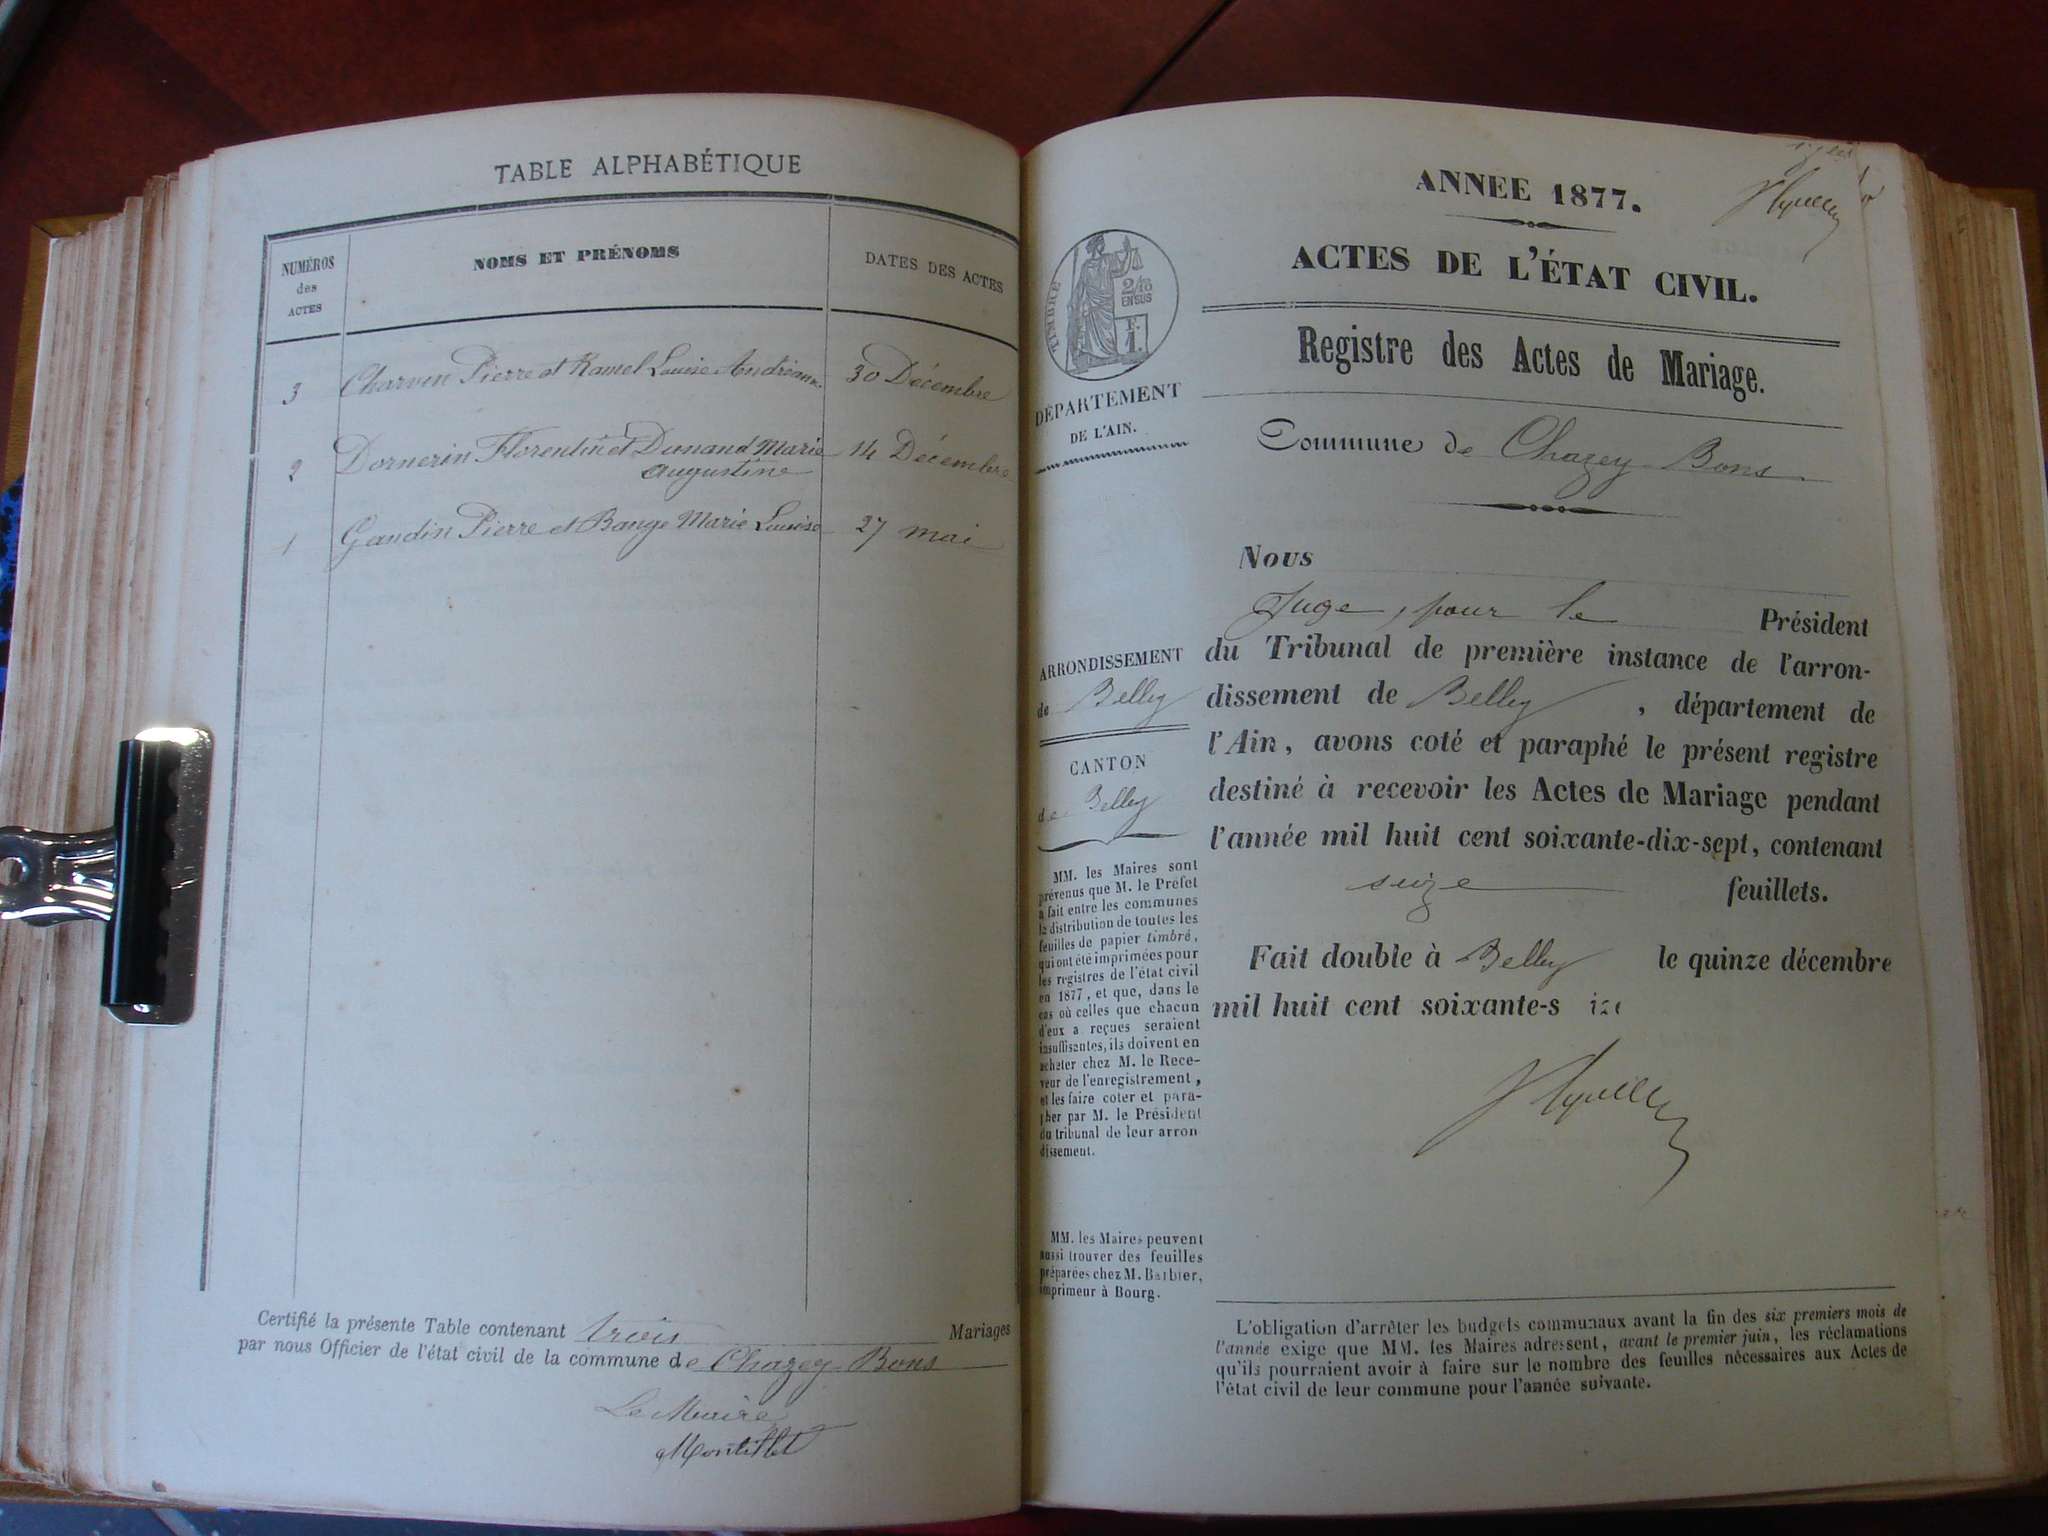 TABLE ALPHABÉTIQUE
NUMÉROS des ACTES
NOMS ET PRÉNOMS
DATES DES ACTES
3 Charvin Pierre et Ramel Louise Andréanne 30 Décembre
2 Dornerin Florentin et Dunand Marie 14 Décembre
augustine
1 Gandin Pierre et Bange Marie Louise 27 mai
Certifié la présente Table contenant trois Mariages
par nous Officier de l'état civil de la commune de Chazey-Bons
Le Maire
Montillet
ANNEE 1877.
ACTES DE L'ÉTAT CIVIL.
Registre des Actes de Mariage.
TIMBRE
2/10
EN SUS
F.
1.
DÉPARTEMENT
DE L'AIN.
Commune de Chazey-Bons
ARRONDISSEMENT
de Belley
CANTON
de Belley
MM. les Maires sont
prévenus que M. le Préfet
a fait entre les communes
la distribution de toutes les
feuilles de papier timbré,
qui ont été imprimées pour
les registres de l'état civil
en 1877, et que, dans le
cas où celles que chacun
d'eux a reçues seraient
insuffisantes, ils doivent en
acheter chez M. le Rece-
veur de l'enregistrement,
et les faire coter et para-
pher par M. le Président
du tribunal de leur arron
dissement.
MM. les Maires peuvent
aussi trouver des feuilles
préparées chez M. Barbier,
imprimeur à Bourg.
Nous
Juge, pour le Président
du Tribunal de première instance de l'arron-
dissement de Belley, département de
l'Ain, avons coté et paraphé le présent registre
destiné à recevoir les Actes de Mariage pendant
l'année mil huit cent soixante-dix-sept, contenant
seize feuillets.
Fait double à Belley le quinze décembre
mil huit cent soixante-s ize
L'obligation d'arrêter les budgets communaux avant la fin des six premiers mois de
l'année exige que MM. les Maires adressent, avant le premier juin, les réclamations
qu'ils pourraient avoir à faire sur le nombre des feuilles nécessaires aux Actes de
l'état civil de leur commune pour l'année suivante.